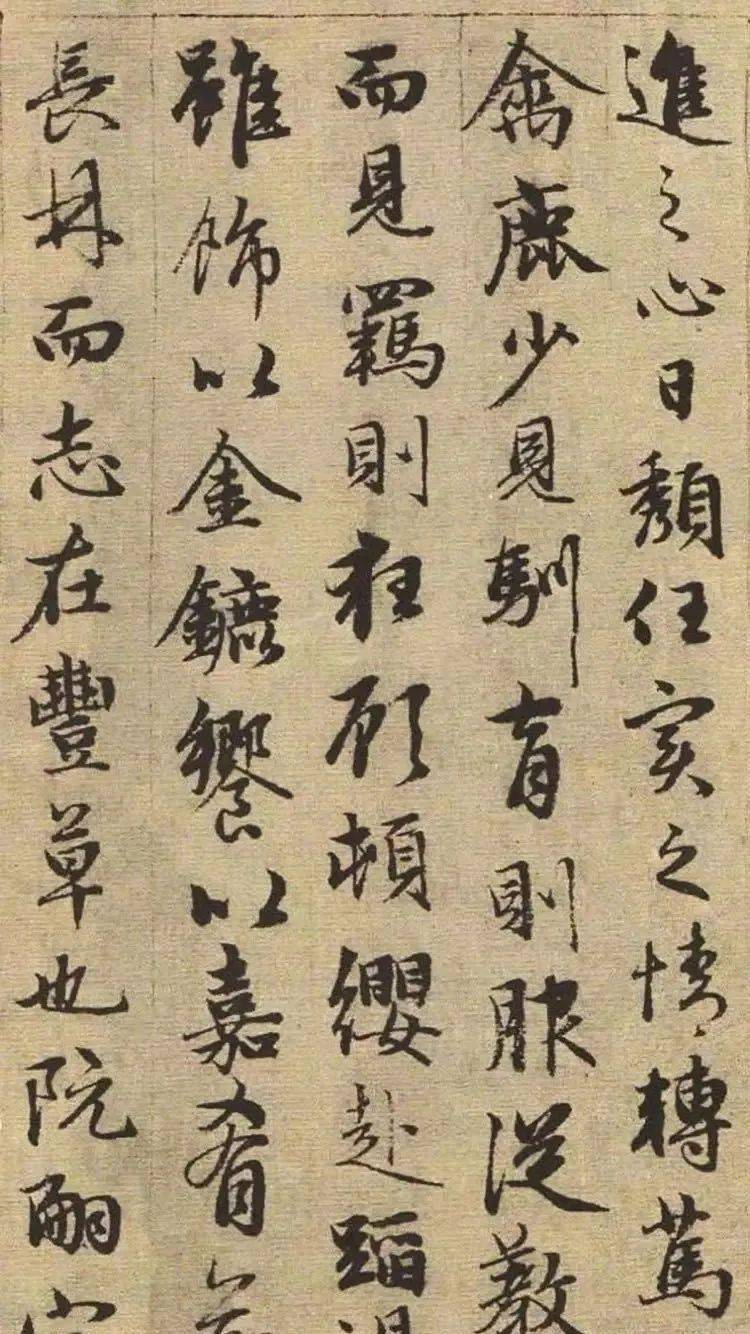 進之心日頹任實之情轉篤
禽鹿少見馴育則服從教
而見羈則狂顧頓纓赴蹈
雖飾以金鑣饗以嘉肴
長林而志在豐草也阮嗣